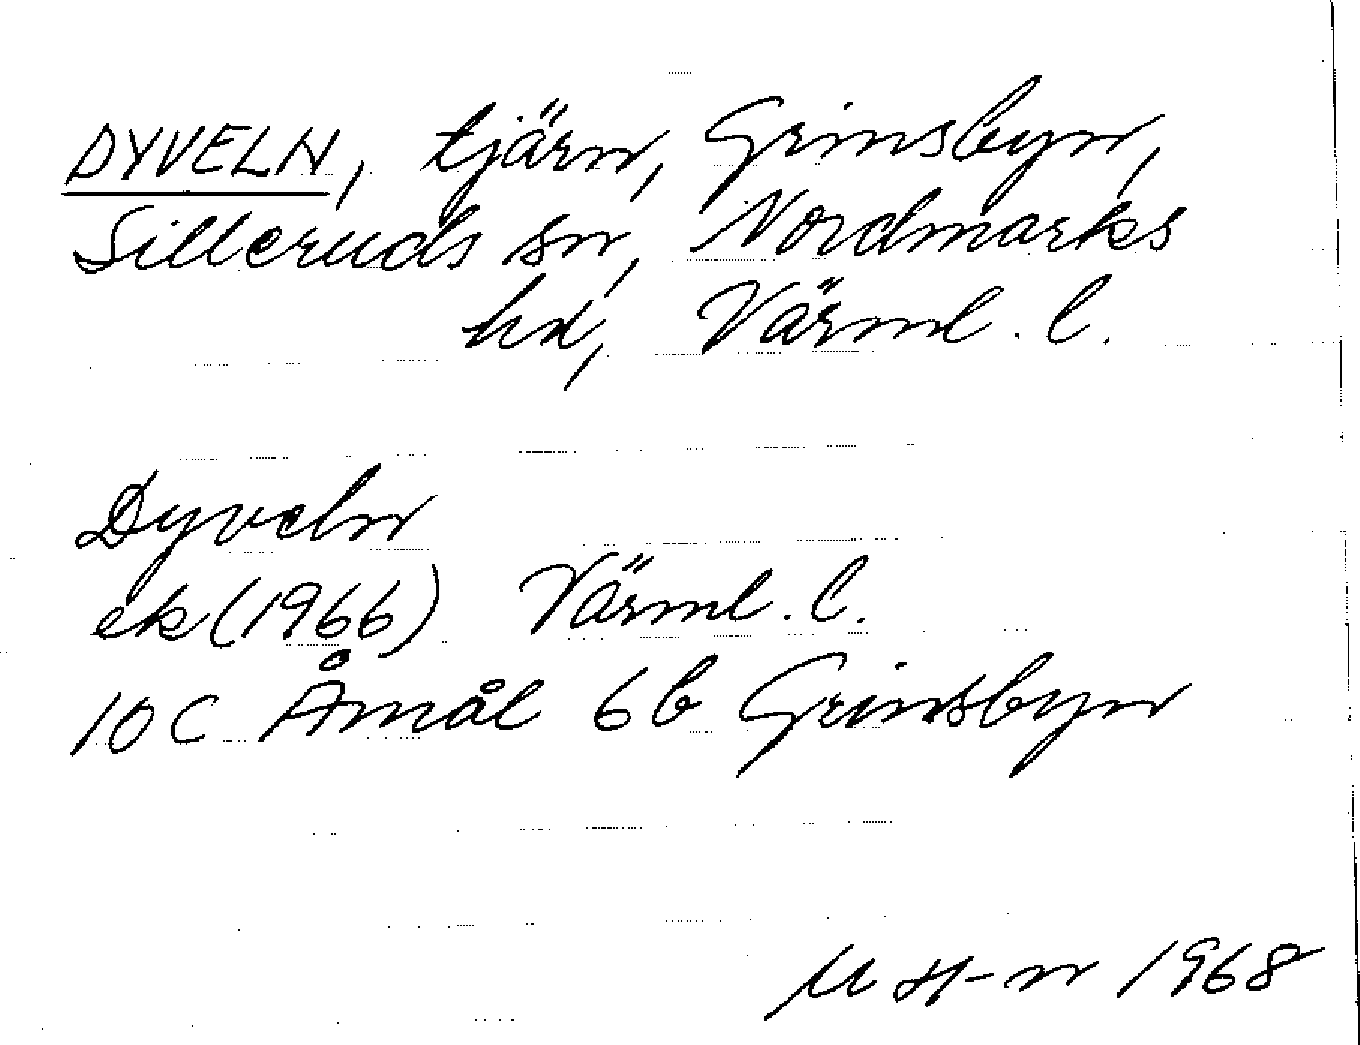 DYVELN, tjärn, Grinsbyn,
Silleruds sn, Nordmarks
hd, Värml. l.
Dyveln
ek (1966) Värml. l.
10 C Åmål 6 b Grinsbyn
M H-n 1968